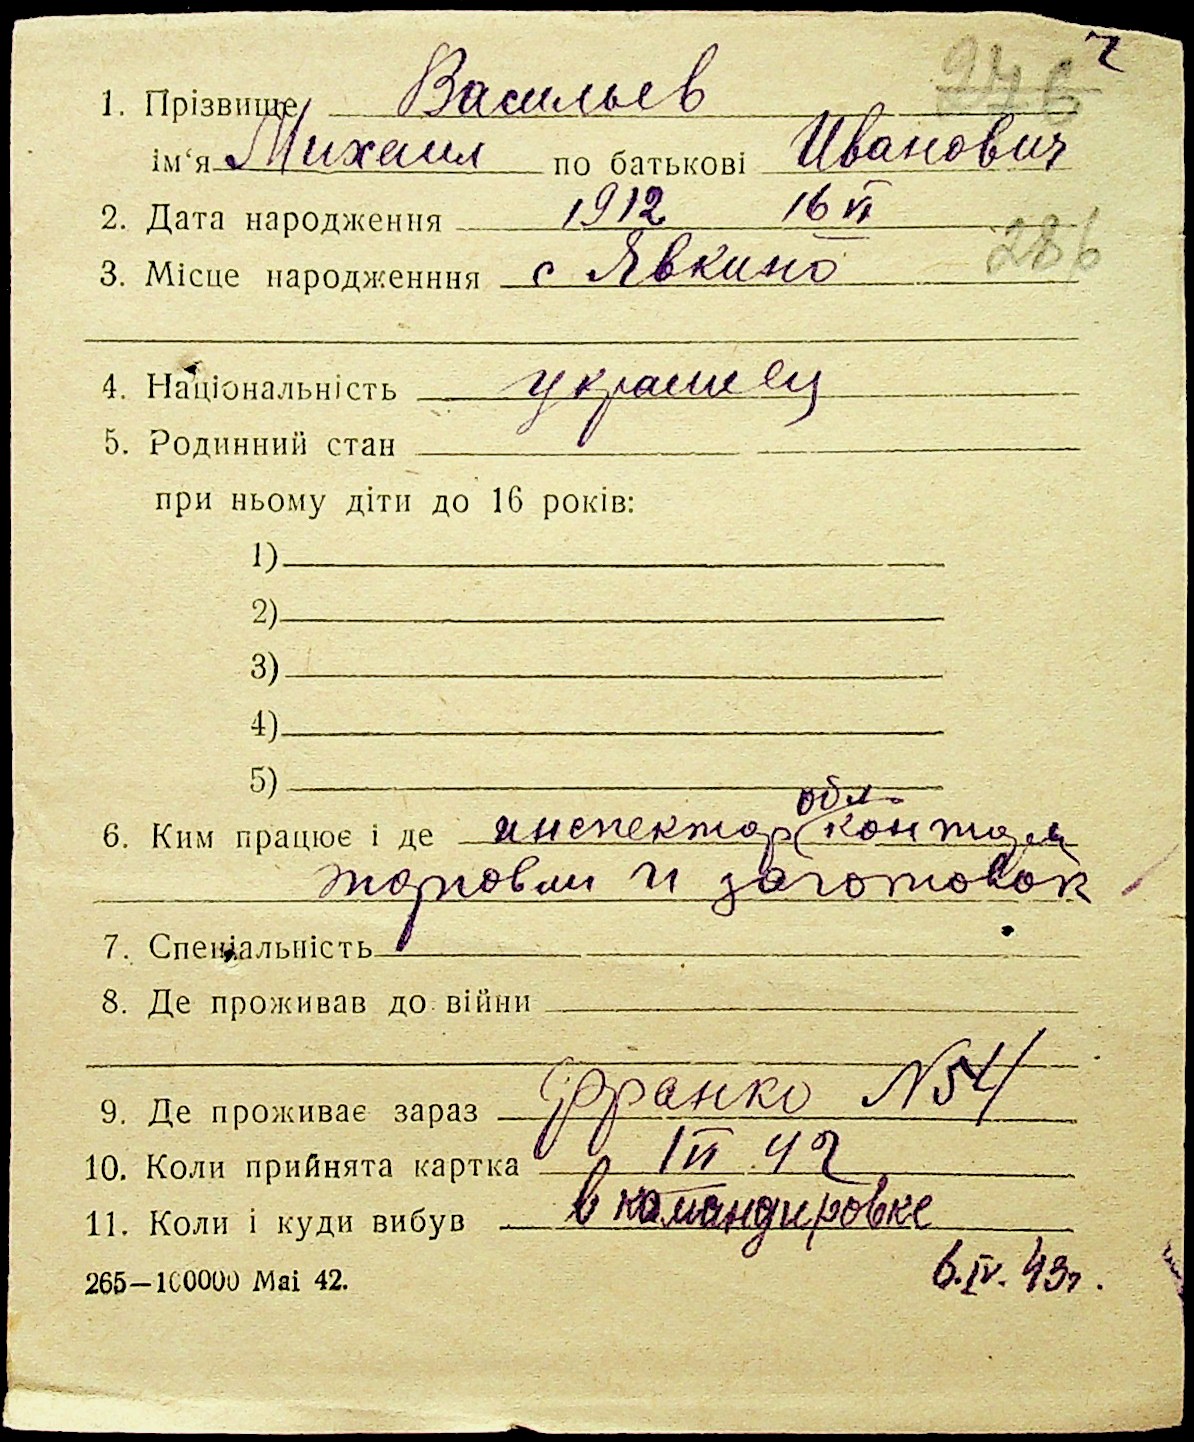 ч
276
1. Прізвище Васильев
ім‘я Михаил по батькові Иванович
2. Дата народження 1912 16 VI
286
3. Місце народженння с Явкино
4. Національність украинец
5. Родинний стан
при ньому діти до 16 років:
1)
2)
3)
4)
5)
обл.
6. Ким працює і де инспектор
торговли и заготовок
7. Спеціальність
8. Де проживав до війни
9. Де проживає зараз Франко N 54
10. Коли прийнята картка 1 VI 42
11. Коли і куди вибув в командировке
265—100000 Mai 42. 6. IV. 43г.